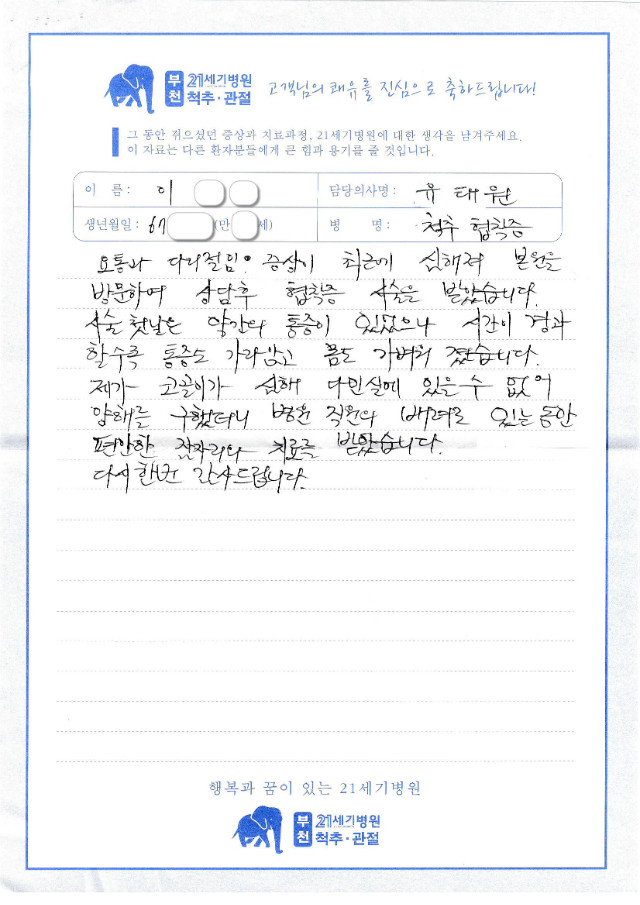 부천 21세기병원 척추·관절 고객님의 쾌유를 진심으로 축하드립니다!
그 동안 겪으셨던 증상과 치료과정, 21세기병원에 대한 생각을 남겨주세요.
이 자료는 다른 환자분들에게 큰 힘과 용기를 줄 것입니다.
이 름 : 이 담당의사명 : 유태원
생년월일 : 67 (만 세) 병 명 : 척추 협착증
요통과 다리절임. 증상이 최근에 심해져 본원을
방문하여 상담후 협착증 시술을 받았습니다.
시술 첫날은 약간의 통증이 있었으나 시간이 경과
할수록 통증도 가라앉고 몸도 가벼워 졌습니다.
제가 코골이가 심해 다인실에 있을 수 없어
양해를 구했더니 병원 직원의 배려로 있는동안
편안한 잠자리와 치료를 받았습니다.
다시한번 감사드립니다.
행복과 꿈이 있는 21세기병원
부천 21세기병원 척추·관절